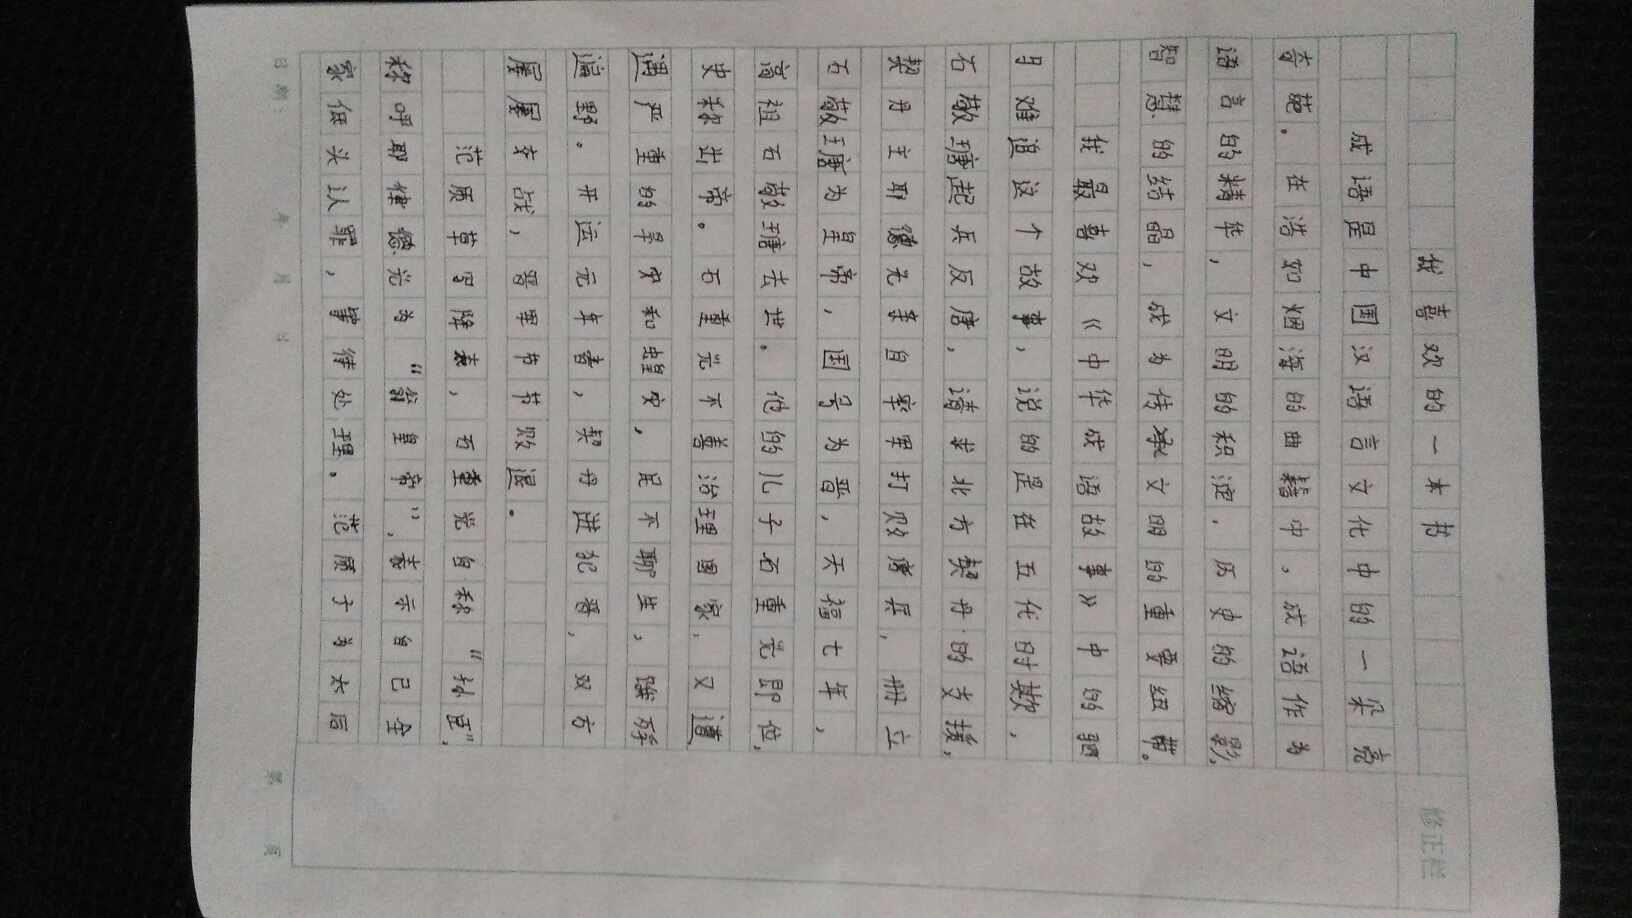 修正栏
我喜欢的一本书
成语是中国汉语言文化中的一朵亮
奇葩。在浩如烟海的曲籍中，成语作为
语言的精华，文明的积淀，历史的缩影，
智慧的结晶，成为传承文明的重要纽带。
我最喜欢《中华成语故事》中的驷
马难追这个故事，说的是在五代时期，
石敬瑭起兵反唐，请求北方契丹的支援，
契丹主耶德光亲自率军打败唐兵，册立
石敬瑭为皇帝，国号为晋，天福七年，
高祖石敬瑭去世。他的儿子石重光即位，
史称出帝。石重光不善治理国家，又遭
遇严重的旱灾和蝗灾，民不聊生，饿殍
遍野。开运元年春，契丹进犯晋，双方
屡屡交战，晋军节节败退。
范质草写降表，石重光自称“孙臣”，
称呼耶律德光为“翁皇帝”，表示自己全
家低头认罪，待处理。范质子为太后
日期： 年 月 日 第 页